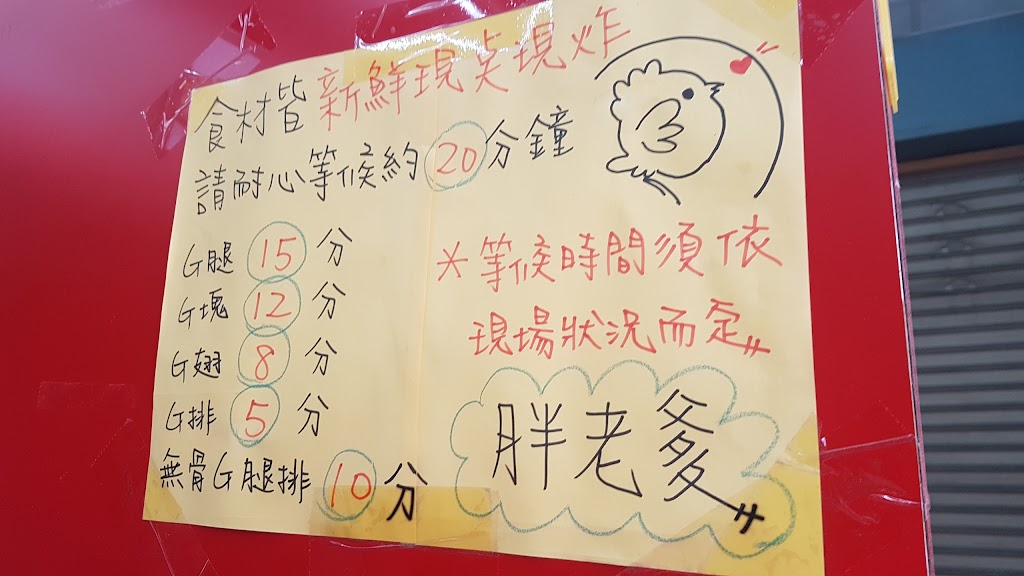 食材皆新鮮現点現炸
請耐心等候約20分鐘
G腿 15 分
G塊 12 分
G翅 8 分
G排 5 分
無骨G腿排 10 分
*等候時間須依
現場狀況而定
胖老爹